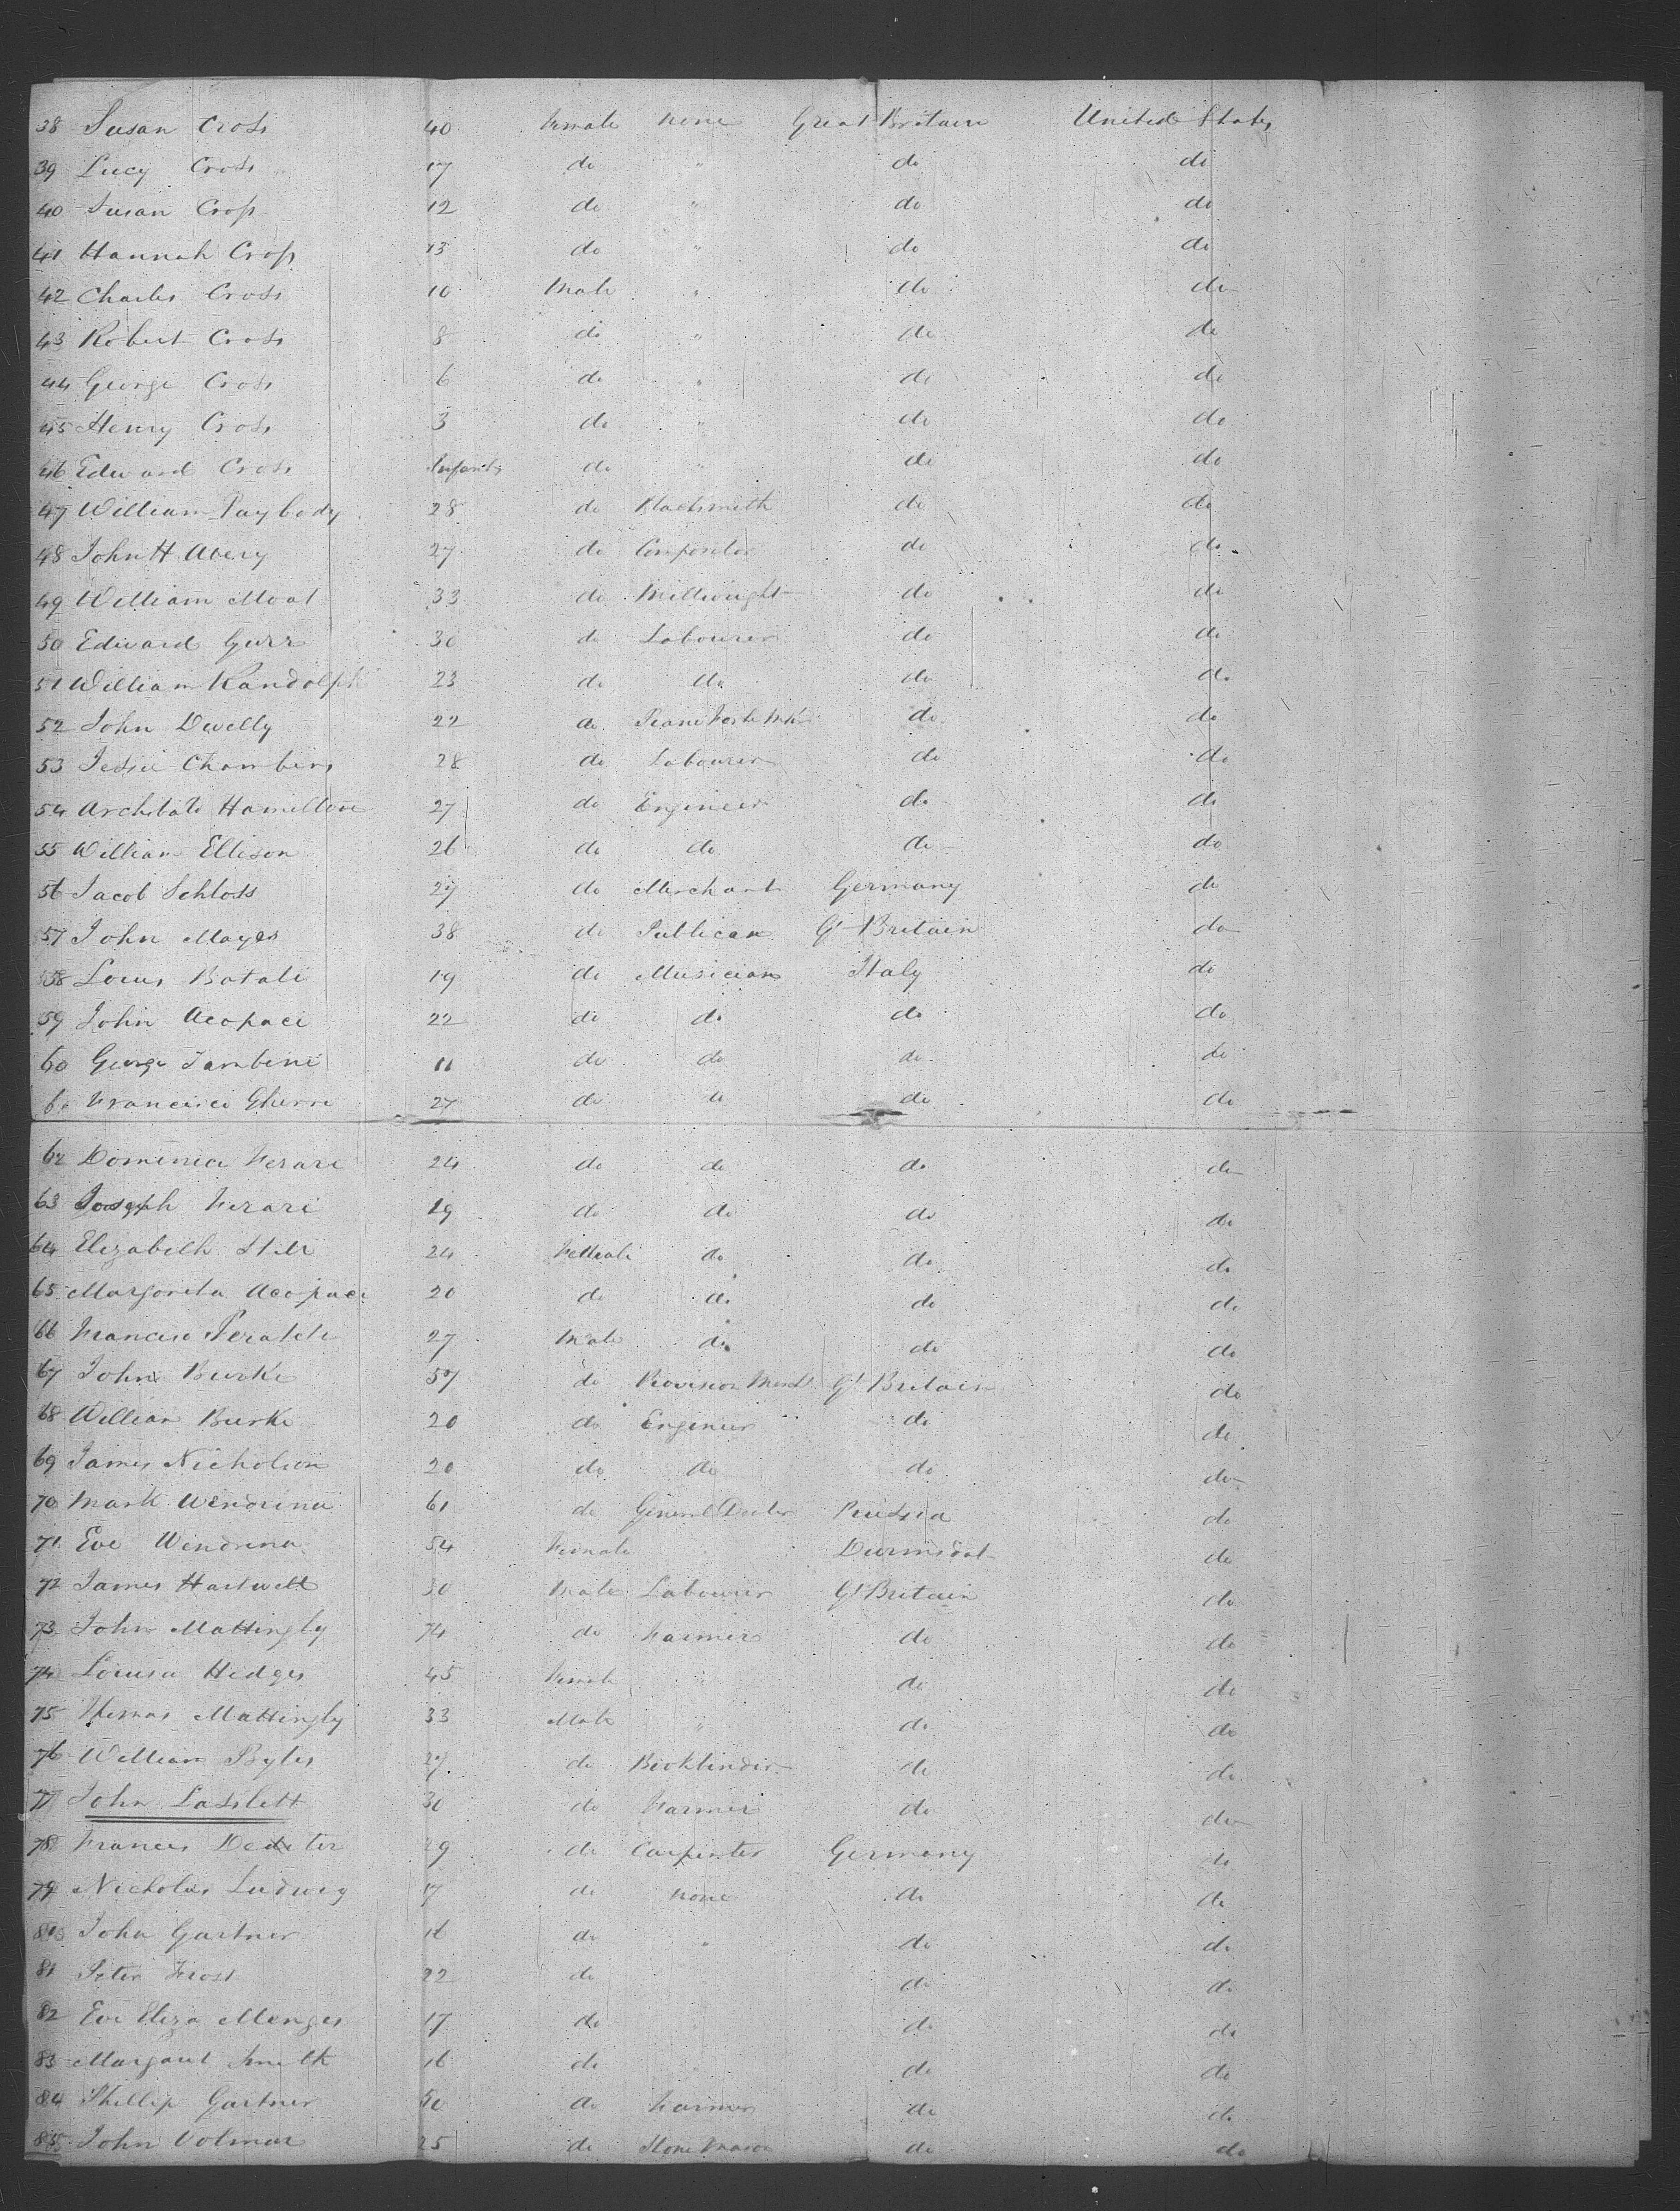 38 Susan Cross 40 Female None Great Britain United States
39 Lucy Cross 17 do " do do
40 Susan Cross 12 do " do do
41 Hannah Cross 13 do " do do
42 Charles Cross 10 Male " do do
43 Robert Cross 8 do " do do
44 George Cross 6 do " do do
45 Henry Cross 3 do " do do
46 Edward Cross Infant do " do do
47 William Paybody 28 do Blacksmith do do
48 John H Avery 27 do Compositor do do
49 William Moat 33 do Millwright do do
50 Edward Gurr 30 do Labourer do do
51 William Randolph 23 do do do do
52 John Dwelly 22 do Piano Forte Mkr do do
53 Jessie Chambers 28 do Labourer do do
54 Archibald Hamilton 27 do Engineer do do
55 William Ellison 26 do do do do
56 Jacob Schloss 27 do Merchant Germany do
57 John Mayes 38 do Publican Gt Britain do
58 Louis Batali 19 do Musician Italy do
59 John Acopaci 22 do do do do
60 George Tambini 11 do do do do
61 Francisco Gherri 27 do do do do
62 Dominica Ferari 24 do do do do
63 Joseph Ferari 19 do do do do
64 Elizabeth 24 Female do do do
65 Margoreta Acopaci 20 do do do do
66 Francisc 27 Male do do do
67 John Burke 57 do Provision Mercht Gt Britain do
68 William Burke 20 do Engineer do do
69 James Nicholson 20 do do do do
70 Mark Wendrina 61 do General Dealer Prussia do
71 Eve Wendrina 54 Female " Durmsdat do
72 James Hartwell 30 Male Labourer Gt Britain do
73 John Mattingly 74 do Farmer do do
74 Louisa Hedges 45 Female " do do
75 Thomas Mattingly 33 Male " do do
76 William Byles 27 do Bookbinder do do
77 John Lasslett 30 do Farmer do do
78 Frances 29 do Carpenter Germany do
79 Nicholas Ludwig 17 do None do do
80 John Gartner 16 do " do do
81 Peter Frost 22 do do do
82 Eve Eliza Menges 17 do do do
83 Margaret Smith 16 do do do
84 Phillip Gartner 50 do Farmer do do
85 John Volmar 25 do Stone Mason do do